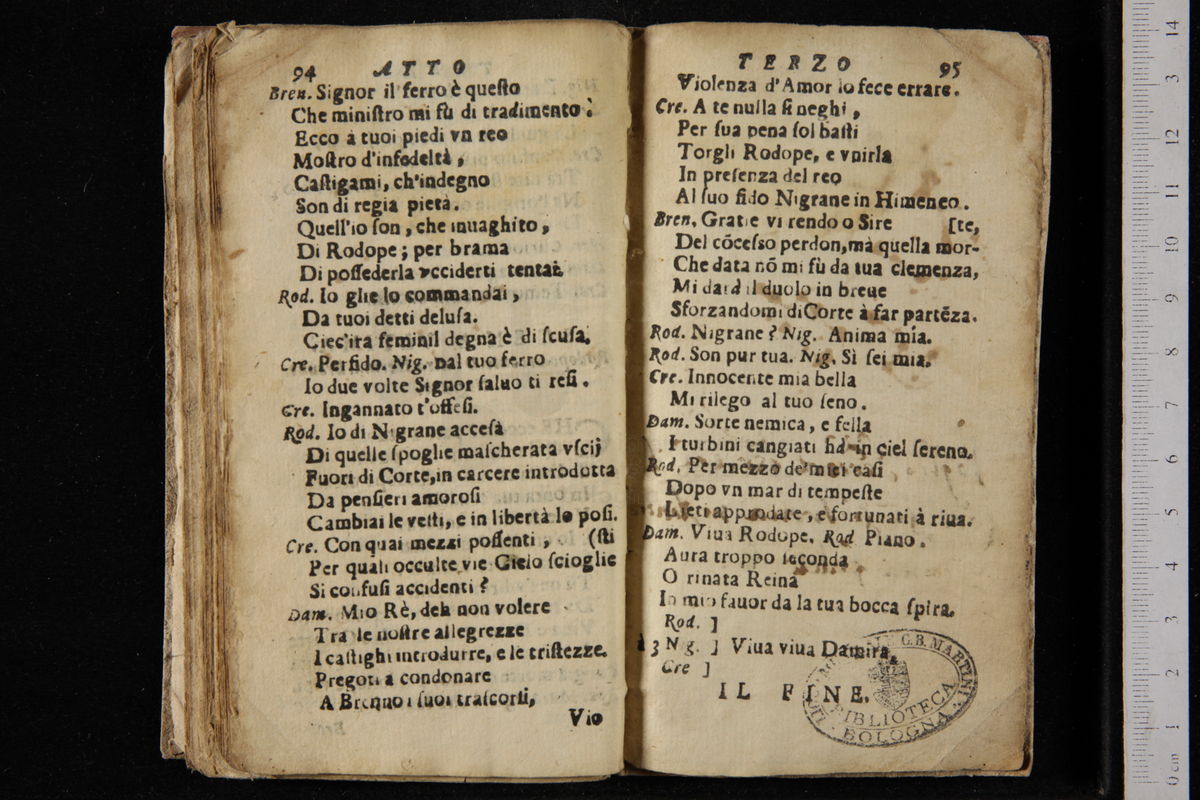 94 ATTO
Bren. Signor il ferro è queſto
Che miniſtro mi fù di tradimento;
Ecco à tuoi piedi vn reo
Moſtro d'infedeltà,
Caſtigami, ch'indegno
Son di regia pietà.
Quell'io ſon, che inuaghito,
Di Rodope; per brama
Di poſſederla vcciderti tentai.
Rod. Io glie lo commandai,
Da tuoi detti deluſa.
Ciec'ira feminil degna è di ſcuſa.
Cre. Perfido. Nig. Dal tuo ferro
Io due volte Signor ſaluo ti reſi.
Cre. Ingannato t'offeſi.
Rod. Io di Nigrane acceſa
Di quelle ſpoglie maſcherata vſcij
Fuori di Corte, in carcere introdotta
Da penſieri amoroſi
Cambiai le veſti, e in libertà lo poſi.
Cre. Con quai mezzi poſſenti, (ſti
Per quali occulte vie Cielo ſcioglie
Si confuſi accidenti?
Dam. Mio Rè, deh non volere
Tra le noſtre allegrezze
I caſtighi introdurre, e le triſtezze.
Pregoti a condonare
A Brenno i ſuoi traſcorſi,
Vio
TERZO 95
Violenza d'Amor lo fece errare.
Cre. A te nulla ſi neghi,
Per ſua pena ſol baſti
Torgli Rodope, e vnirla
In preſenza del reo
Al ſuo fido Nigrane in Himeneo.
Bren. Gratie vi rendo o Sire [te,
Del cõceſso perdon, mà quella mor-
Che data nõ mi fù da tua clemenza,
Mi darà il duolo in breue
Sforzandomi di Corte à far partẽza.
Rod. Nigrane? Nig. Anima mia.
Rod. Son pur tua. Nig. Sì ſei mia.
Cre. Innocente mia bella
Mi rilego al tuo ſeno.
Dam. Sorte nemica, e fella
I turbini cangiati hà in ciel ſereno.
Rod. Per mezzo de' miei caſi
Dopo vn mar di tempeſte
Lieti approdate, e fortunati à riua.
Dam. Viua Rodope. Rod Piano.
Aura troppo feconda
O rinata Reina
In mio fauor da la tua bocca ſpira.
Rod. ]
à 3 Nig. ] Viua viua Damira.
Cre ]
IL FINE.
C.B. MARTINI
BIBLIOTECA
BOLOGNA